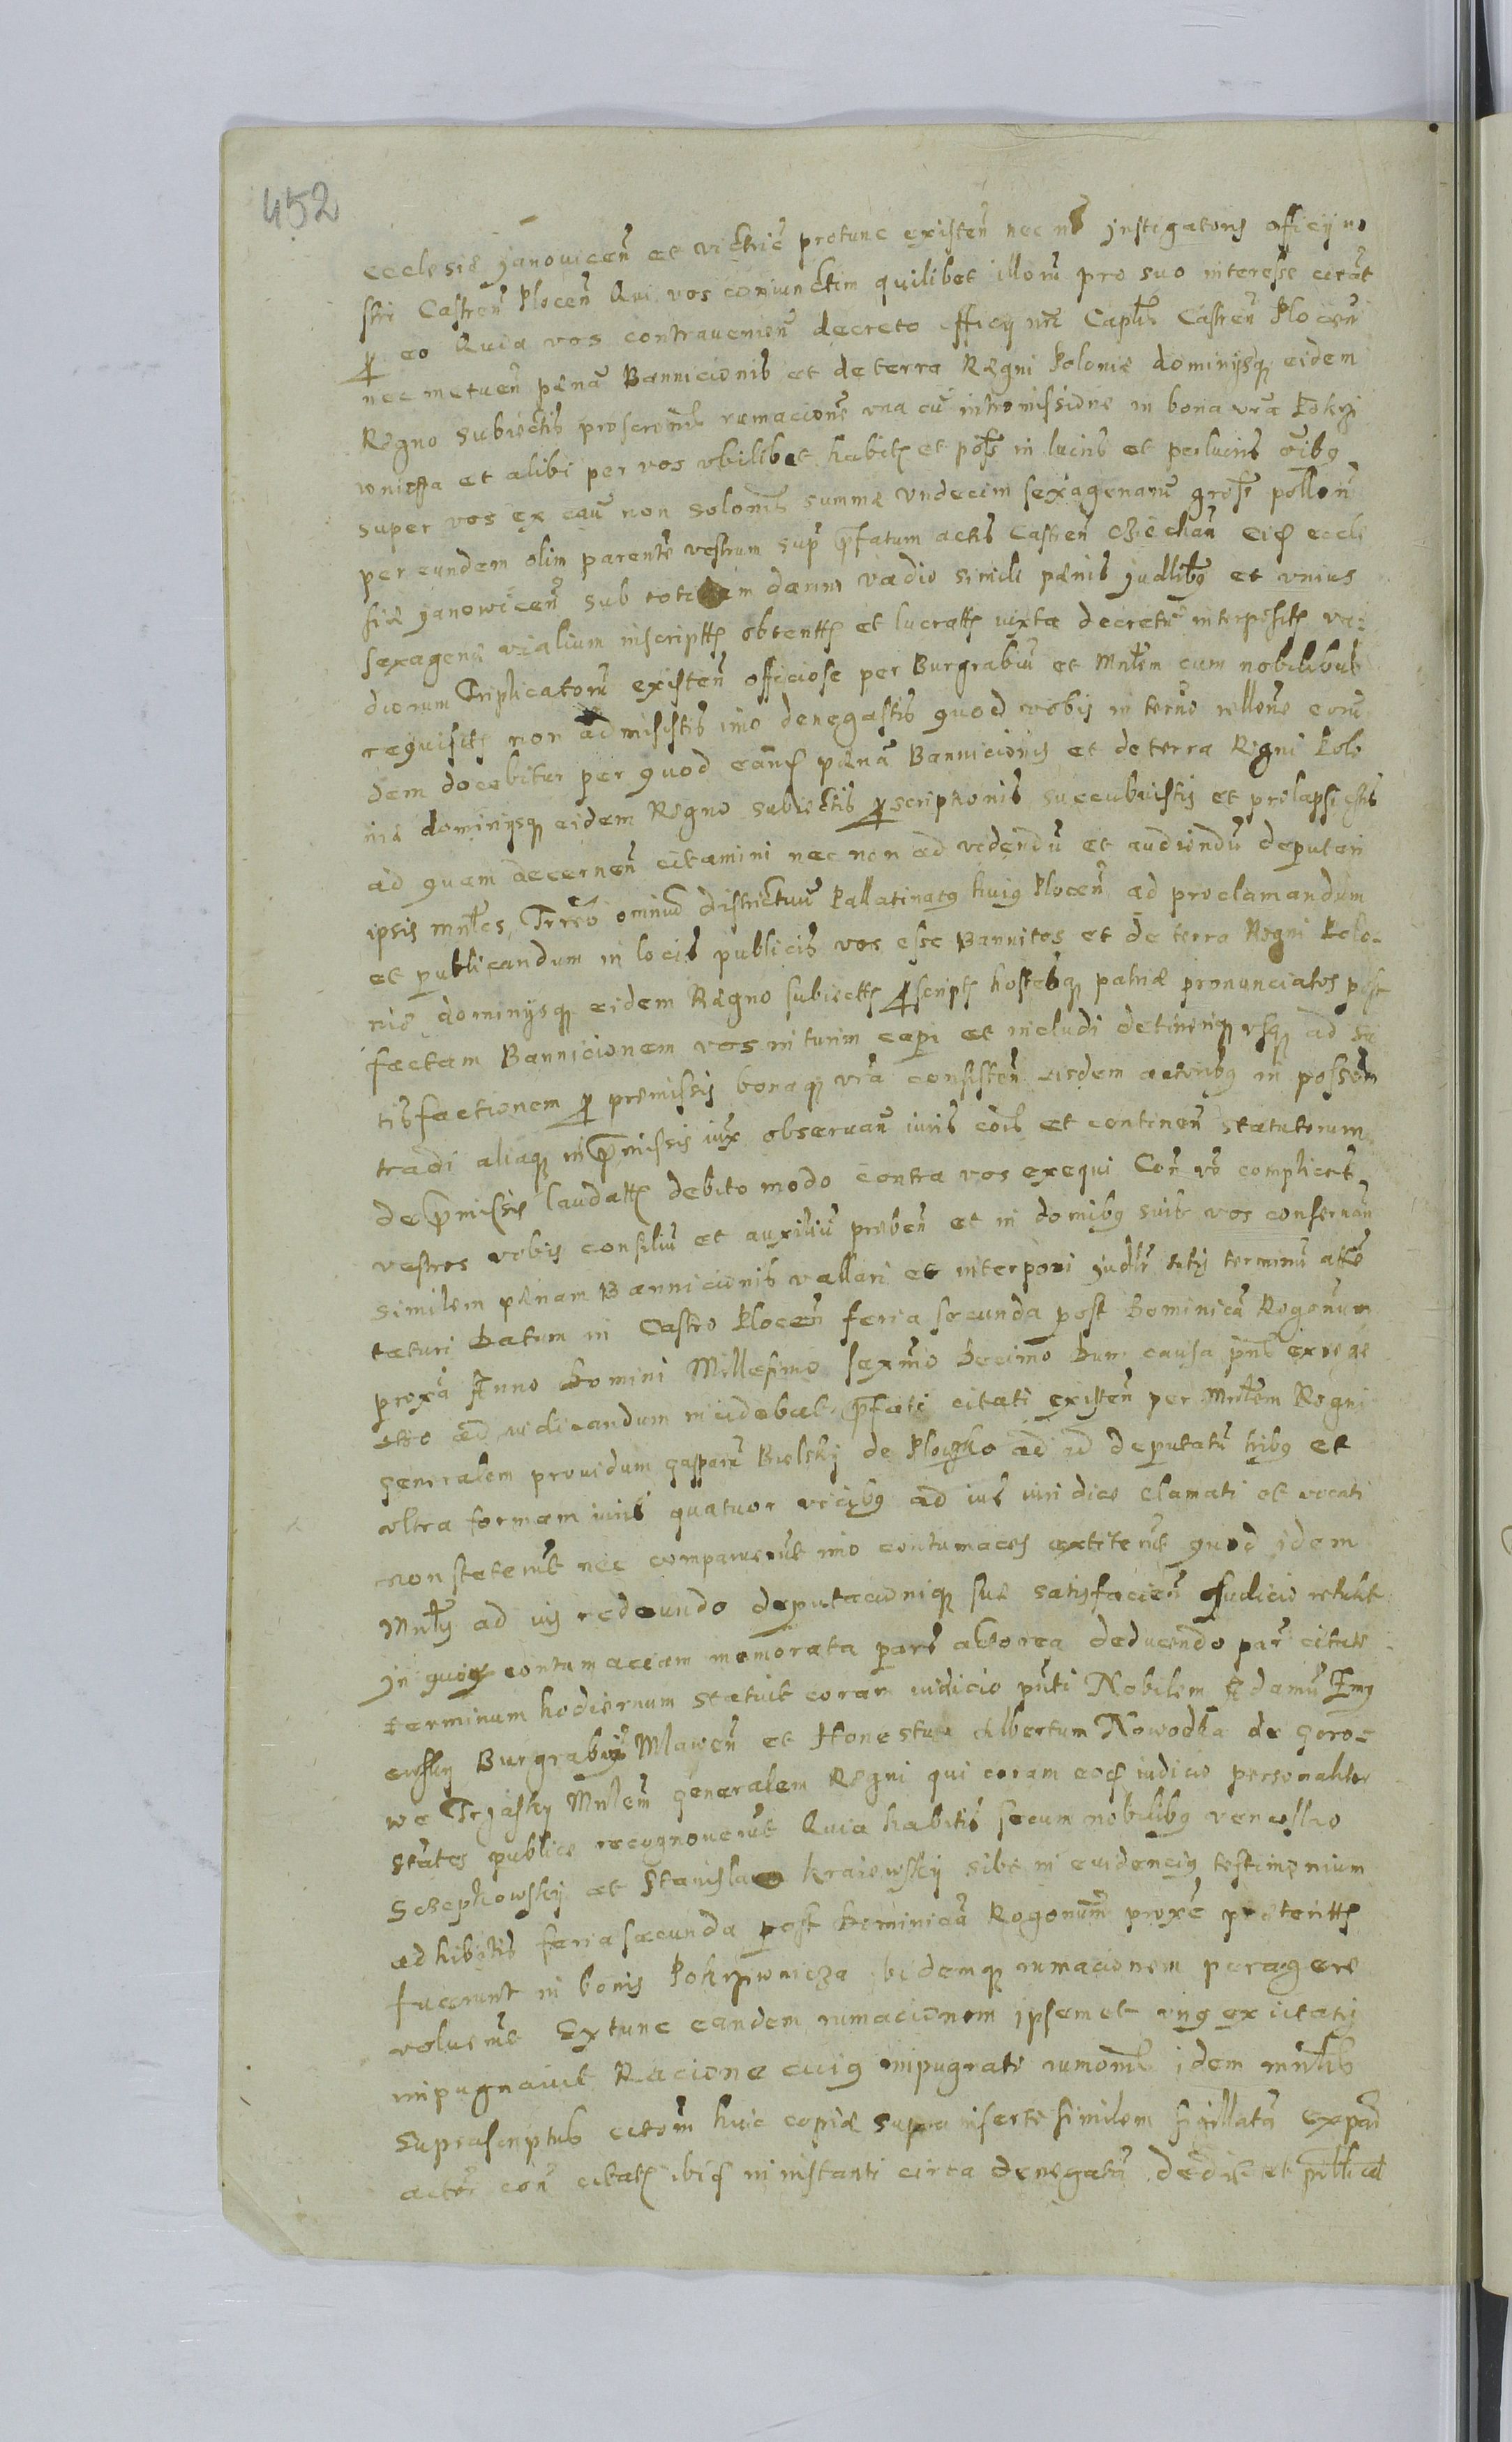 452
ecclesiæ Janouicen̄ et victric̄ protunc existen̄ nec nō Jnstigatoris officij no
stri Castren̄ Plocen̄ Qui vos coniunctim quilibet illorū pro suo interesse citāt
p eo Quia vos contrauenien̄ decreto officij nr̄i Capt̄lis Castren̄ Plocen̄
nec metuen̄ pænā Bannicionis et de terra Regni Poloniæ dominijsq eidem
Regno subiectis proscron̄is rumacionē vna cū intromissione in bona vr̄a Pokrzi
wnicza et alibi per vos vbilibet habit et poss in lucris et perlucris oībq
super vos ex cau non solonis summæ vndecim sexagenarū gross pollon̄
per eundem olim parentē vestrum sup p̄fatum actis Castren̄ Ciechan̄ eid eccle
siæ Janowicen̄ sub totidem damni vadio simili pænis judlibq et vnius
sexagenæ vialium inscriptt obtentt et lucratt iuxta decretū interposit va:
diorum Triplicatorū existen̄ officiose per Burgrabiū et Mnt̄lem cum nobilibus
requisit non admisistis imo denegastis quod vobis in terno rellone eorū
dem docebitur per quod eand pænā Bannicionis et de terra Regni Polo
niæ dominijsq eidem Regno subiectis pscriptionis succubuistis et prolapsi estis
ad quam decernen̄ citamini nec non ad videndū et audiendū deputari
ipsis mnt̄les Trr̄eō omniū districtuū Pallatinatq huiq Plocen̄ ad proclamandum
et publicandum in locis publicis vos esse Bannitos et de terra Regni Polo-
niæ dominijsq eidem Regno subiectt pscript hostesq patriæ pronunciatos post
factam Bannicionem vos in turim capi et includi detineriq vsq ad sa
tisfactionem p præmissis bonaq vr̄a consisten̄ eisdem actoribq in possem
tradi aliaq in p̄missis iux obseruan̄ iuris cōis et continen̄ statutorum
de p̄missis laudatt debito modo contra vos exequi Con̄ vō complices
vestros vobis consiliū et auxiliū præben̄ et in domibq suis vos conseruan̄
similem pænam Bannicionis vallari et interponi judlr sitis terminū atte
taturi Datum in Castro Plocen̄ feria secunda post Dominicā Rogonum
proxā Anno Domini Millesimo sexmo Decimo Dum causa pn̄s ex
ad iudicandum incidebat p̄fati citati existen̄ per Mnt̄lem Regni
generalem prouidum Gasparū Bielskij de Ploczko ad id deputatū tribq et
vltra formam iuris quatuor vicibq ad ius iuridice clamati et vocati
non steterūt nec comparuerūt imo contumaces extiterūt quod idem
Mnt̄lis ad ius redeundo deputacioniq suæ satisfacien̄ Judicio retulit
Jn quorq contumaciam memorata pars actorea deducendo par citatæ
terminum hodiernum statuit coram iudicio pn̄ti Nobilem Adamū Smq
ewskij Burgrabiū Mlawen̄ et Honestum Albertum Nowodka de Goro-
we Trzaskij Mnlem̄ generalem Regni qui coram eod iudicio personaliter
stātes publice recognouerūt Quia habitis secum nobilibq venceslao
Sczepkowskij et Stanislao Kraiewskij sibi in euidenciq testimonium
adhibitis feria secunda post Dominicā Rogonum̄ proxē præteritt
fuerunt in bonis Pokrziwnicza ibidemq rumacionem peragere
voluerūt Extunc eandem rumacionem ipsemet vnq ex citatis
impugnauit Racione cuiq impugnatæ rumonis idem mnt̄lis
suprascriptus citom̄ huic copiæ supra insertæ similem sigillatā ex par
actor con̄ citat ibid in instanti circa denegatā dedit et publicat